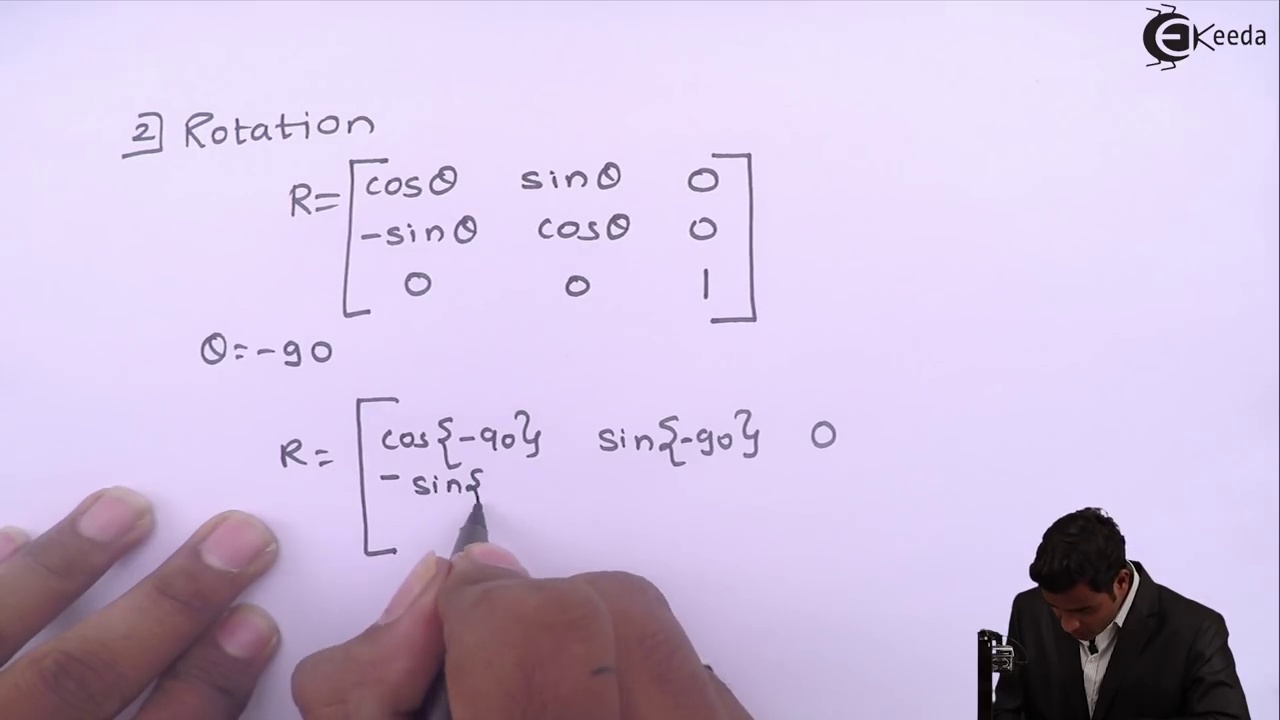 EKeeda
2 Rotation
R= [ cosθ sinθ 0
-sinθ cosθ 0
0 0 1 ]
θ=-90
R= [ cos{-90} sin{-90} 0
- sin{